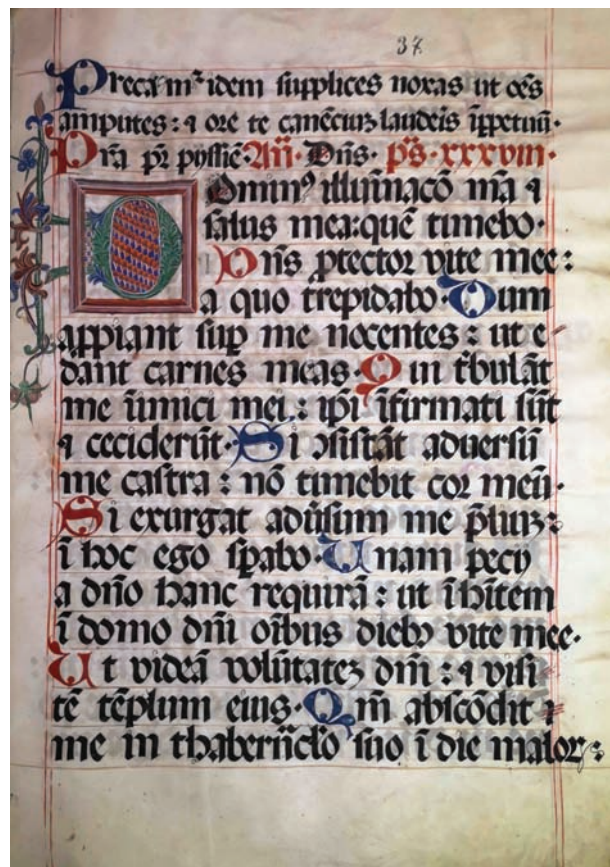 37
Precam᷒ idem supplices noxas ut oēs
amputes: ⁊ ore te canēciuꝫ laudeis īppetim̄·
Pr̄a pr̄ pyssiē· Añ· Dñs· p̄s·xxxviii·
Dominꝰ illūnacō m̄a ⁊
salus mea: quē timebo·
Dñs ꝓtector vite mee:
a quo trepidabo· Dum
appiant sup̱ me nocentes: ut e
dant carnes meas· Q̄ui t̄bulāt
me īimici mei: ip̄i īfirmati sūt
⁊ ceciderūt· Si ↄsistāt adversū
me castra: nō timebit cor meū·
Si exurgat adūsum me p̄liuꝫ:
ī hoc ego spabo· Unam pecy
a dn̄o hanc requirā: ut īhītem
ī domo dn̄i oībus diebꝰ vite mee·
Ut videā volūtateꝫ dn̄i: ⁊ visi
tē tēplum eius· Qm̄ abscōdit
me in thabern̄clo suo ī die maloꝝ: